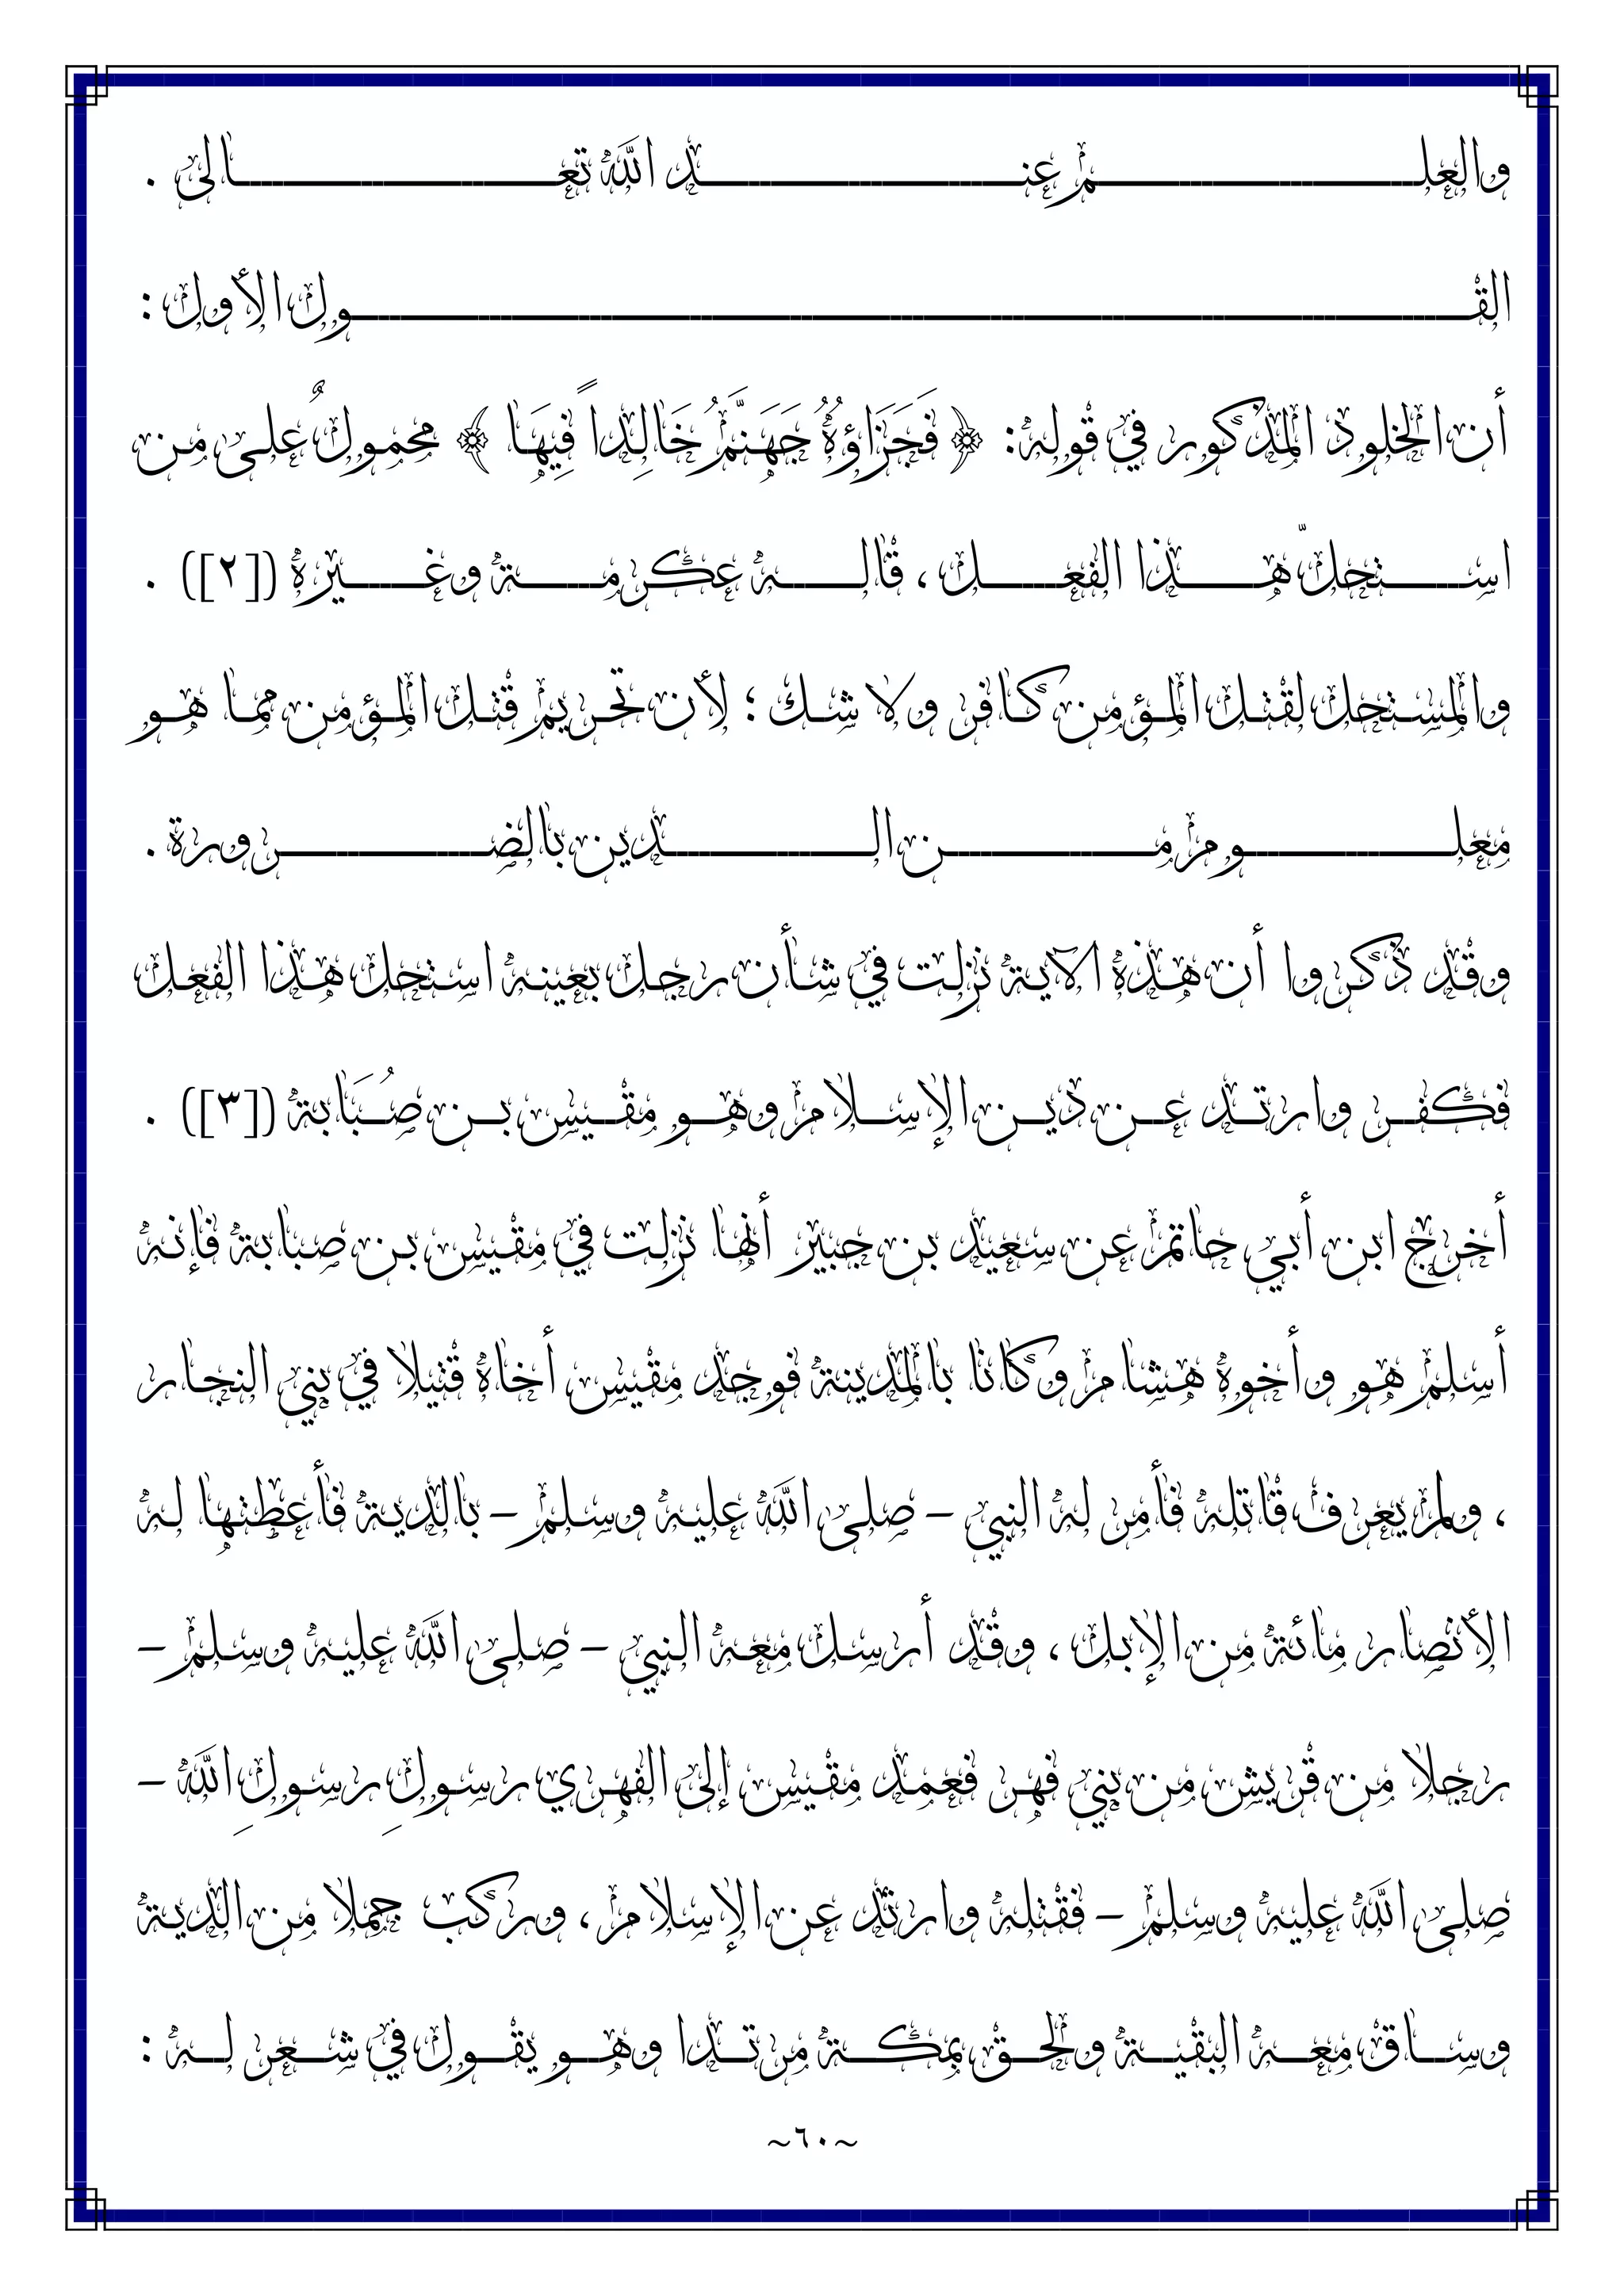 والعلم عند الله تعالى .
القول الأول :
أن الخلود المذكور في قوله: ﴿ فَجَزَاؤُهُ جَهَنَّمُ خَالِداً فِيهَا ﴾ محمولٌ على من
استحلّ هذا الفعل ، قاله عكرمة وغيره ([٢]) .
والمستحل لقتل المؤمن كافر ولا شك ؛ لأن تحريم قتل المؤمن مما هو
معلوم من الدين بالضرورة .
وقد ذكروا أن هذه الآية نزلت في شأن رجل بعينه استحل هذا الفعل
فكفر وارتد عن دين الإسلام وهو مقيس بن صُبَابة ([٣]) .
أخرج ابن أبي حاتم عن سعيد بن جبير أنها نزلت في مقيس بن صبابة فإنه
أسلم هو وأخوه هشام وكانا بالمدينة فوجد مقيس أخاه قتيلا في بني النجار
، ولم يعرف قاتله فأمر له النبي – صلى الله عليه وسلم – بالدية فأعطتها له
الأنصار مائة من الإبل ، وقد أرسل معه النبي – صلى الله عليه وسلم –
رجلا من قريش من بني فهر فعمد مقيس إلى الفهري رسولِ رسولِ الله –
صلى الله عليه وسلم – فقتله وارتدّ عن الإسلام ، وركب جملا من الدية
وساق معه البقية ولحق بمكة مرتدا وهو يقول في شعر له :
~٦٠~